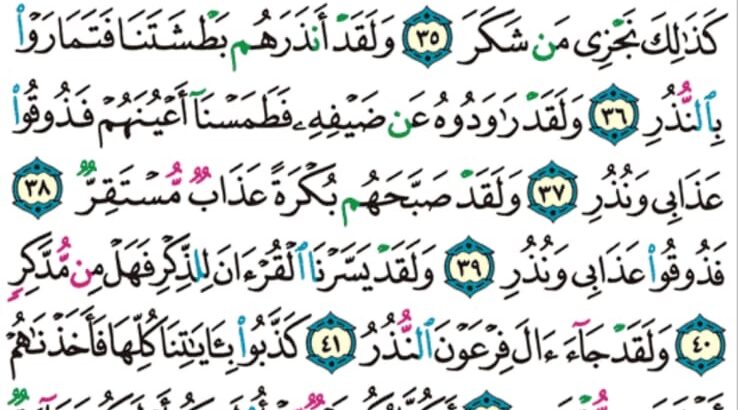 كَذَٰلِكَ نَجْزِي مَن شَكَرَ ٣٥ وَلَقَدْ أَنذَرَهُم بَطْشَتَنَا فَتَمَارَوْا۟
بِٱلنُّذُرِ ٣٦ وَلَقَدْ رَٰوَدُوهُ عَن ضَيْفِهِۦ فَطَمَسْنَآ أَعْيُنَهُمْ فَذُوقُوا۟
عَذَابِي وَنُذُرِ ٣٧ وَلَقَدْ صَبَّحَهُم بُكْرَةً عَذَابٌ مُّسْتَقِرٌّ ٣٨
فَذُوقُوا۟ عَذَابِي وَنُذُرِ ٣٩ وَلَقَدْ يَسَّرْنَا ٱلْقُرْءَانَ لِلذِّكْرِ فَهَلْ مِن مُّدَّكِرٍ
٤٠ وَلَقَدْ جَآءَ ءَالَ فِرْعَوْنَ ٱلنُّذُرُ ٤١ كَذَّبُوا۟ بِـَٔايَٰتِنَا كُلِّهَا فَأَخَذْنَٰهُمْ